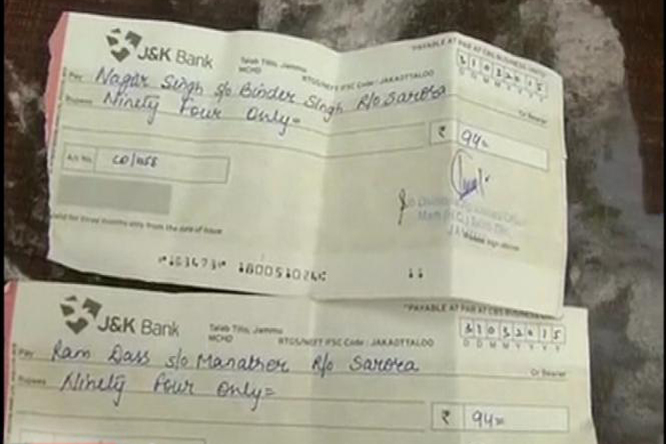 J&K Bank
Talab Tillo, Jammu
MCHD
RTGS/NEFT IFSC Code : JAKA0TTALOO
PAYABLE AT PAR AT CBS BUSINESS
31032015
D D M M Y Y Y Y
Pay Nagar Singh s/o Binder Singh R/o Sarora
Or Bearer
Rupees Ninety Four Only=
₹ 94=
A/c No.
valid for three months only from the date of issue
Please sign above
J&K Bank
Talab Tillo, Jammu
MCHD
RTGS/NEFT IFSC Code : JAKA0TTALOO
"PAYABLE AT PAR AT CBS BUSINESS
31032015
D D M M Y Y Y Y
Pay Ram Dass s/o Manather R/o Sarora
Or Bearer
Rupees Ninety Four Only=
₹ 94=